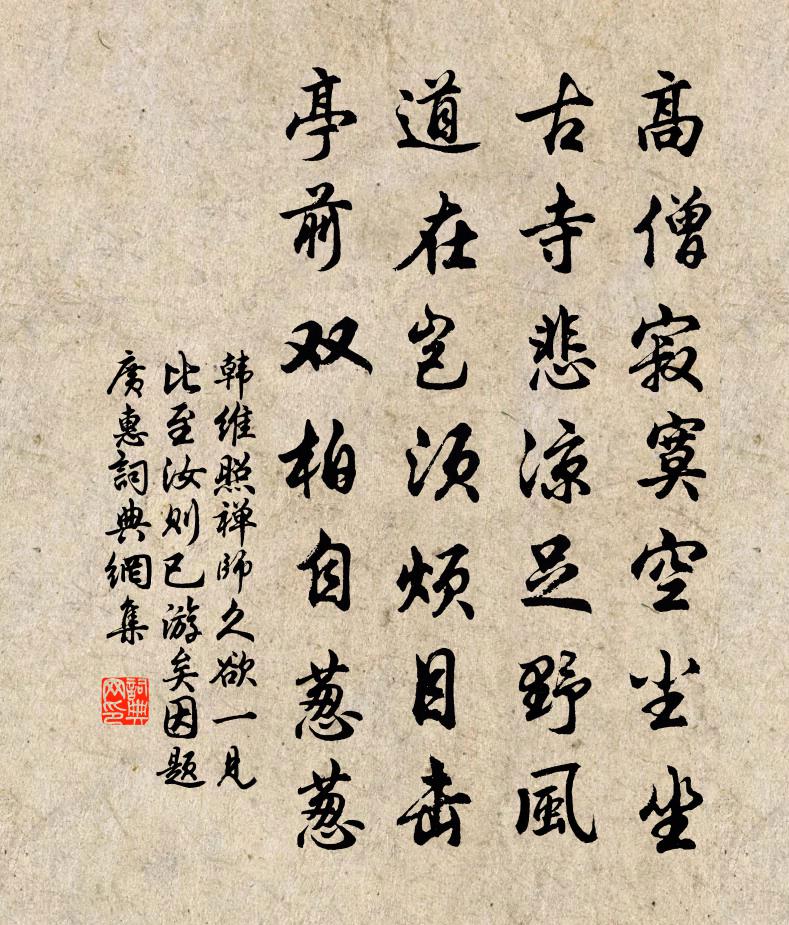 高僧寂寞空尘坐
古寺悲凉足野風
道在岂须烦目击
亭前双柏自葱葱
韩维照禅师久欲一见
比至汝则已游矣因题
廣惠詞典網集
詞典網印